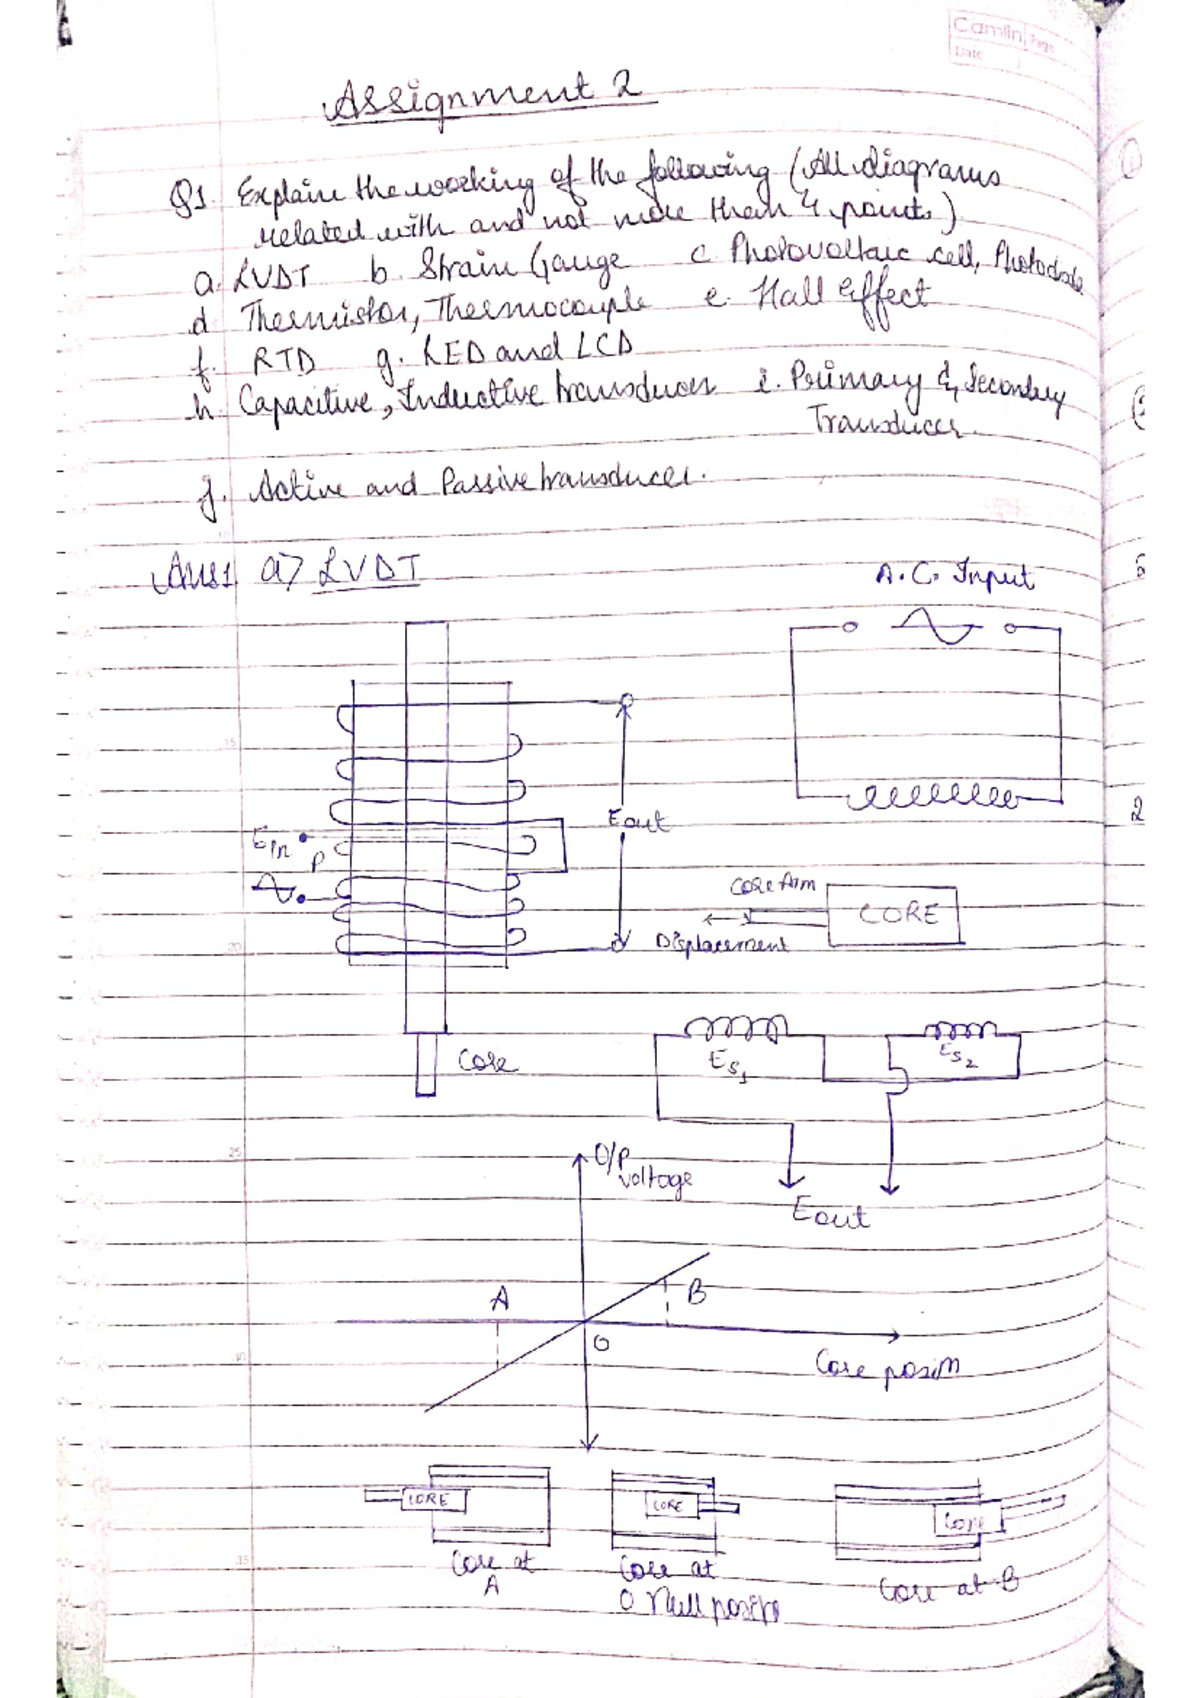 Camlin Page
Date
Assignment 2
Q1 Explain the working of the following (All diagrams
related with and not more than 4 points)
a. LVDT b. Strain Gauge c Photovoltaic cell, Photodiode
d Thermistor, Thermocouple e. Hall effect
f. RTD g. LED and LCD
h. Capacitive, Inductive transducer i. Primary & Secondary
Transducer.
j. Active and Passive transducer.
Ans1 a) LVDT
A.C. Input
15
Eout
Ein P
Core Arm
CORE
20
Displacement
Core
ES1
ES2
25
O/P
voltage
Eout
A
B
O
Core posin
CORE
CORE
Core
35
Core at
A
Core at
O Null positn
Core at B
2